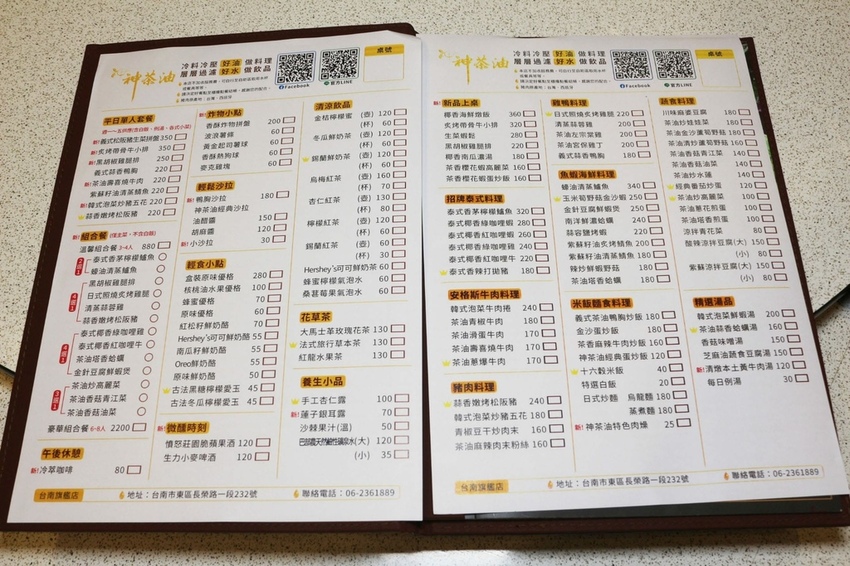 神茶油
冷料冷壓 好油 做料理
層層過濾 好水 做飲品
Facebook
官方LINE
桌號
平日單人套餐
新! 義式松阪豬生菜拼盤 350
新! 炙烤帶骨牛小排 350
黑胡椒雞腿排 250
義式蒜香鴨胸 220
茶油壽喜燒牛肉 220
紫蘇籽油清蒸鯖魚 220
新! 韓式泡菜炒豬五花 220
蒜香嫩烤松阪豬 220
新! 組合餐
溫馨組合餐 3-4人 880
泰式香茅檸檬鱸魚
蠔油清蒸鱸魚
黑胡椒雞腿排
日式照燒炙烤雞腿
清蒸蒜蓉雞
蒜香嫩烤松阪豬
泰式椰香綠咖哩雞
泰式椰香紅咖哩牛
茶油塔香蛤蠣
金針豆腐鮮蝦煲
茶油炒高麗菜
茶油香菇青江菜
茶油香菇油菜
豪華組合餐 6-8人 2200
午後休憩
新! 冷萃咖啡 80
新! 炸物小點
香酥炸物拼盤 200
波浪薯條 60
黃金起司薯球 60
香酥熱狗球 60
麥克雞塊 60
輕鬆沙拉
新! 鴨胸沙拉 180
神茶油經典沙拉
油醋醬 150
胡麻醬 120
新! 小沙拉 30
輕食小點
盒裝原味優格 280
核桃油水果優格 100
蜂蜜優格 70
原味優格 60
紅松籽鮮奶酪 70
Hershey's可可鮮奶酪 55
南瓜籽鮮奶酪 55
Oreo鮮奶酪 55
原味鮮奶酪 50
古法黑糖檸檬愛玉 45
古法冬瓜檸檬愛玉 45
新! 微醺時刻
憤怒莊園脆蘋果酒 120
生力小麥啤酒 120
清涼飲品
金桔檸檬蜜 (壺) 120
(杯) 60
冬瓜鮮奶 (壺) 120
(杯) 60
錫蘭鮮奶茶 (壺) 120
(杯) 60
烏梅紅茶 (壺) 160
(杯) 70
杏仁紅茶 (壺) 130
(杯) 80
檸檬紅茶 (壺) 130
(杯) 60
錫蘭紅茶 (壺) 60
(杯) 30
Hershey's可可鮮奶茶 60
蜂蜜檸檬氣泡水 60
桑葚莓果氣泡水 60
花草茶
大馬士革玫瑰花茶 130
法式旅行草本茶 130
紅龍水果茶 130
養生小品
手工杏仁露 100
新! 蓮子銀耳露 70
沙棘果汁(溫) 50
(大) 120
(小) 35
台南旗艦店
地址：台南市東區長榮路一段232號
聯絡電話：06-2361889
神茶油
冷料冷壓 好油 做料理
層層過濾 好水 做飲品
Facebook
官方LINE
桌號
新! 新品上桌
椰香海鮮燉飯 360
炙烤帶骨牛小排 320
生菜蝦鬆 280
黑胡椒雞腿排 220
椰香南瓜濃湯 180
茶香櫻花蝦高麗菜 160
茶香櫻花蝦蛋炒飯 160
招牌泰式料理
泰式香茅檸檬鱸魚 320
泰式椰香綠咖哩蝦 280
泰式椰香紅咖哩蝦 260
泰式椰香綠咖哩雞 240
泰式椰香紅咖哩牛 220
泰式香辣打拋豬 180
安格斯牛肉料理
韓式泡菜牛肉捲 240
茶油青椒牛肉 190
茶油滑蛋牛肉 170
茶油壽喜燒牛肉 170
茶油蔥爆牛肉 170
豬肉料理
蒜香嫩烤松阪豬 240
韓式泡菜炒豬五花 180
青椒豆干炒肉末 160
茶油麻辣肉末粉絲 160
雞鴨料理
日式照燒炙烤雞腿 220
清蒸蒜蓉雞 200
茶油左宗棠雞 200
茶油宮保雞丁 200
義式蒜香鴨胸 180
魚蝦海鮮料理
蠔油清蒸鱸魚 340
玉米筍野菇金沙蝦 250
金針豆腐鮮蝦煲 250
南洋鮮濃蛤蠣 240
蒜蓉鹽烤蝦 220
紫蘇籽油炙烤鯖魚 200
紫蘇籽油清蒸鯖魚 200
辣炒鮮蝦野菇 180
茶油塔香蛤蠣 180
米飯麵食料理
義式茶油鴨胸炒飯 180
金沙蛋炒飯 180
茶香麻辣牛肉炒飯 160
神茶油經典蛋炒飯 120
十六穀米飯 40
特選白飯 20
日式炒麵 烏龍麵 180
蒸煮麵 180
新! 神茶油特色肉燥 25
蔬食料理
川味麻婆豆腐 180
茶油炒娃娃菜 180
茶油金沙濃筍野菇 180
茶油香菇青江菜 140
茶油香菇油菜 140
茶油清炒濃筍野菇 150
茶油炒水蓮 140
經典番茄炒蛋 120
茶油炒高麗菜 100
茶油蔥花煎蛋 100
茶油塔香煎蛋 100
涼拌青花菜 80
酸辣涼拌豆腐(大) 150
(小) 80
紫蘇涼拌豆腐(大) 150
(小) 80
精選湯品
韓式泡菜鮮蝦湯 200
茶油蒜香蛤蠣湯 160
香菇味噌湯 150
芝麻油蔬食豆腐湯 150
新! 清燉本土黃牛肉湯 120
每日例湯 30
台南旗艦店
地址：台南市東區長榮路一段232號
聯絡電話：06-2361889